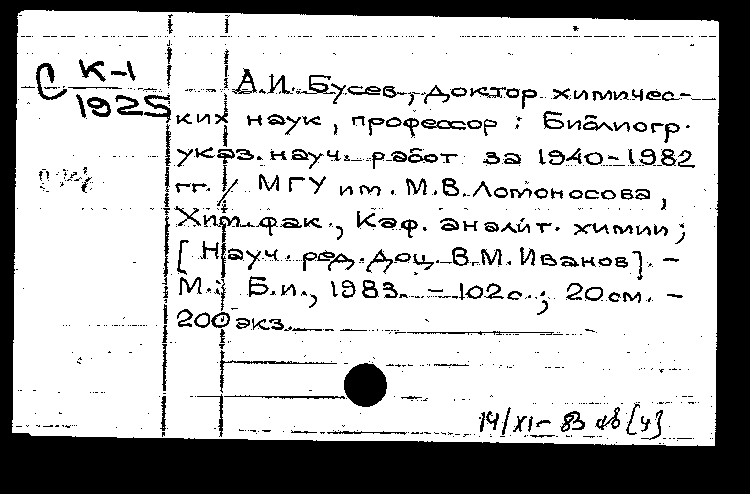 С К-1
1925
А.И. Бусев, доктор химичес-
ких наук, профессор : Библиогр.
указ. науч. работ за 1940-1982
гг. / МГУ им. М.В. Ломоносова,
Хим. фак., Каф. аналит. химии;
[Науч. ред. доц. В.М. Иванов]. -
М.: Б.и., 1983. - 102с.; 20см. -
200экз.
14/XI- 83 [4]